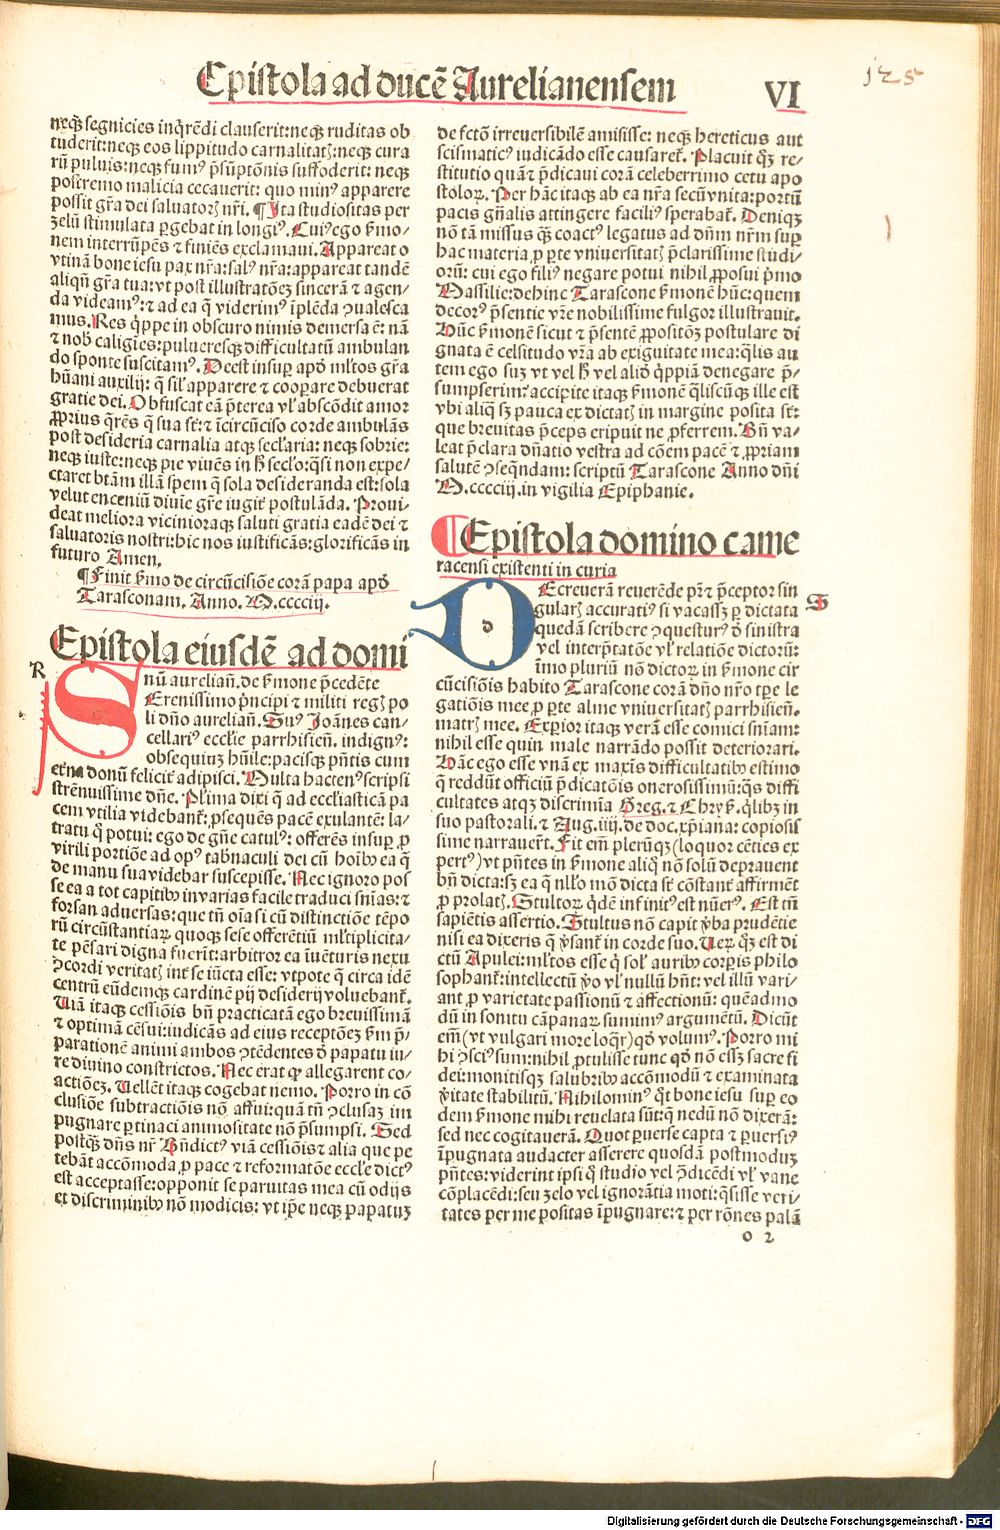 Epistola ad ducē Aurelianensem VI
125
neqꝫ segnicies inq̄rēdi clauserit: neqꝫ ruditas ob
tuderit: neqꝫ eos lippitudo carnalitatꝭ: neqꝫ cura
rū puluis: neqꝫ fumꝰ p̄sūptōnis suffoderit: neqꝫ
postremo malicia cecauerit: quo minꝰ apparere
possit gr̄a dei saluatorꝭ nr̄i. ¶ Ita studiositas per
zelū stimulata ꝑgebat in longiꝰ. Cuiꝰ ego ẜmo⸗
nem interrūpēs ⁊ finiēs exclamaui. Appareat o
vtinā bone iesu pax nr̄a: salꝰ nr̄a: appareat tandē
aliqn̄ gr̄a tua: vt post illustratōeꝫ sincerā ⁊ agen⸗
da videamꝰ: ⁊ ad ea q̄ viderimꝰ īplēda ꝯualesca
mus. Res q̄ppe in obscuro nimis demersa ē: nā
⁊ nob̄ caligīes: pulueresqꝫ difficultatū ambulan
do sponte suscitamꝰ. Deest insuꝑ apđ ml̄tos gr̄a
hūani auxilij: q̄ sil̄ apparere ⁊ cooꝑare debuerat
gratie dei. Obfuscat eā p̄terea vl̓ abscōdit amor
ꝓprius q̄rēs q̄ sua sūt: ⁊ īcircūciso corde ambulās
post desideria carnalia atqꝫ secl̓aria: neqꝫ sobrie:
neqꝫ iuste: neqꝫ pie viuēs in h̄ secl̓o: q̄si non expe⸗
ctaret btām illā spem q̄ sola desideranda est: sola
velut enceniū diuīe gr̄e iugit̓ postulāda. Proui⸗
deat meliora viciniora­qꝫ saluti gratia eadē dei ⁊
saluatoris nostri: hic nos iustificās: glorificās in
futuro Amen.
¶ Finit ẜmo de circūcisiōe corā papa apđ
Tarasconam. Anno. M.cccciij.
Epistola eiusdē ad domi
R
nū aurelian̄. de ẜmone p̄cedēte
Serenissimo p̄ncipi ⁊ militi regꝭ po
li dn̄o aurelian̄. Suꝰ Joānes can⸗
cellariꝰ eccl̓ie parrhisien̄. indignꝰ:
obsequiuꝫ hūile: pacisqꝫ pn̄tis cum
eterna donū felicit̓ adipisci. Multa hactenꝰ scripsi
strēnuissime dn̄e. Pl̓ima dixi q̄ ad eccl̓iasticā pa
cem vtilia videbant̓: ꝓsequēs pacē exulantē: la⸗
tratu q̄ potui: ego de gn̄e catulꝰ: offerēs insuꝑ ꝓ
virili portiōe ad opꝰ tab̓naculi dei cū hoībꝰ ea q̄
de manu sua videbar suscepisse. Nec ignoro pos
se ea a tot capitibꝰ in varias facile traduci sn̄ias: ⁊
forsan aduersas: que tn̄ oīa si cū distinctiōe tēpo
rū circūstantiaꝝ quoqꝫ sese offerētiū ml̓tiplicita⸗
te pēsari digna fuerīt: arbitror ea iuēturis nexu
ꝯcordi veritatꝭ int̓ se iūcta esse: vtpote q̄ circa idē
centrū eūdemqꝫ cardinē pij desiderij voluebant̓.
Uiā itaqꝫ cessiōis bn̄ practicatā ego breuissimā
⁊ optimā cēsui: iudicās ad eius receptōeꝫ ẜm p̄⸗
parationē animi ambos ꝯtēdentes đ papatu iu⸗
re diuino constrictos. Nec erat qꝛ allegarent co⸗
actiōeꝫ. Uellēt itaqꝫ cogebat nemo. Porro in cō
clusiōe subtractiōis nō affui: quā tn̄ ꝯclusaꝫ im
pugnare ꝑtinaci animositate nō p̄sumpsi. Sed
postqꝫ dn̄s nr̄ Bn̄dictꝰ viā cessiōis ⁊ alia que pe
tebāt accōmoda ꝓ pace ⁊ reformatōe eccl̓e dictꝰ
est acceptasse: opponit se paruitas mea cū odijs
et discriminibꝰ nō modicis: vt ip̄e neqꝫ papatuꝫ
de fctō irreuersibilē amisisse: neqꝫ hereticus aut
scismaticꝰ iudicādo esse causaret̓. Placuit q̄ꝫ re⸗
stitutio quāt̓ p̄dicaui corā celeberrimo cetu apo
stoloꝝ. Per hāc itaqꝫ ab ea nr̄a secū vnita: portū
pacis gn̄alis attingere faciliꝰ sperabat̓. Deniqꝫ
nō tā missus qꝫ coactꝰ legatus ad dn̄m nr̄m suꝑ
hac materia ꝓ ꝑte vniuersitatꝭ p̄clarissime studi⸗
orū: cui ego filiꝰ negare potui nihil, ꝓposui p̄mo
Massilie: dehinc Tarascone ẜmonē hūc: quem
decorꝰ p̄sentie vr̄e nobilissime fulgor illustrauit.
Hūc ẜmonē sicut ⁊ p̄sentē ꝓpositōꝫ postulare di
gnata ē celsitudo vr̄a ab exiguitate mea: q̄lis au
tem ego suꝫ vt vel h̄ vel aliđ q̄ppiā denegare p̄⸗
sumpserim? accipite itaqꝫ ẜmonē q̄liscūqꝫ ille est
vbi aliq̄ sꝫ pauca ex dictatꝭ in margine posita sūt:
que breuitas p̄ceps eripuit ne ꝓferrem. Bn̄ va⸗
leat p̄clara dn̄atio vestra ad cōem pacē ⁊ ꝓpriam
salutē ꝯseq̄ndam: scriptū Tarascone Anno dn̄i
M.cccciij. in vigilia Epiphanie.
¶ Epistola domino came
racensi existenti in curia
S
d
Decreuerā reuerēde pr̄ ⁊ p̄ceptor sin
gularꝭ accuratiꝰ si vacassꝫ ꝑ dictata
quedā scribere ꝯquesturꝰ đ sinistra
vel interp̄tatōe vl̓ relatiōe dictorū:
īmo pluriū nō dictoꝝ in ẜmone cir
cūcisiōis habito Tarascone corā dn̄o nr̄o tp̄e le
gatiōis mee ꝓ ꝑte alme vniuersitatꝭ parrhisien̄.
matrꝭ mee. Exꝑior itaqꝫ verā esse comici sn̄iam:
nihil esse quin male narrādo possit deteriorari.
Hāc ego esse vnā ex maxīs difficultatibꝰ estimo
q̄ reddūt officiū p̄dicatōis onerosissimū: q̄s diffi
cultates atqꝫ discrimīa Greg. ⁊ Chrys̄. q̄libꝫ in
suo pastorali. ⁊ Aug. iiij. de doc. xp̄iana: copiosis
sime narrauer̄t. Fit em̄ pleruqꝫ (loquor cēties ex
pertꝰ) vt pn̄tes in ẜmone aliq̄ nō solū deprauent
bn̄ dicta: sꝫ ea q̄ nll̓o mō dicta sūt cōstant̓ affirmēt
ꝓ prolatꝭ. Stultoꝝ q̄dē infinitꝰ est nūerꝰ. Est tn̄
sapiētis assertio. Stultus nō capit v̓ba prudētie
nisi ea dixeris q̄ v̓sant̓ in corde suo. Ueꝝ q̄ꝫ est di
ctū Apulei: ml̓tos esse q̄ sol̓ auribꝰ corꝑis philo
sophant̓: intellectū v̓o vl̓ nullū hn̄t: vel illū vari⸗
ant ꝓ varietate passionū ⁊ affectionū: quēadmo
dū in sonitu cāpanaꝝ sumimꝰ argumētū. Dicūt
em̄ (vt vulgari more loq̄r) qđ volumꝰ. Porro mi
hi ꝯsciꝰ sum: nihil ꝓtulisse tunc qđ nō essꝫ sacre fi
dei: monitisqꝫ salubribꝰ accōmodū ⁊ examinata
v̓itate stabilitū. Nihilominꝰ q̄t bone iesu suꝑ eo
dem ẜmone mihi reuelata sūt: q̄ nedū nō dixerā:
sed nec cogitauerā. Quot ꝑuerse capta ⁊ ꝑuersiꝰ
īpugnata audacter asserere quosdā postmoduꝫ
pn̄tes: viderint ipsi q̄ studio vel ꝯdicēdi vl̓ vane
cōplacēdi: seu zelo vel ignorātia moti: q̄sisse veri⸗
tates per me positas īpugnare: ⁊ per rōnes palā
o 2
Digitalisierung gefördert durch die Deutsche Forschungsgemeinschaft - DFG